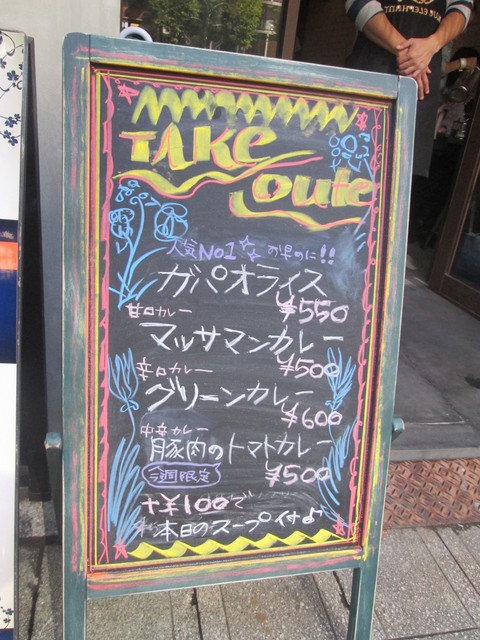 TAKe
oute
人気No1 お早めに!!
ガパオライス
¥550
甘口カレー
マッサマンカレー
¥500
辛口カレー
グリーンカレー
¥600
中辛カレー
豚肉のトマトカレー
今週限定
¥500
+¥100で
本日のスープ付♪